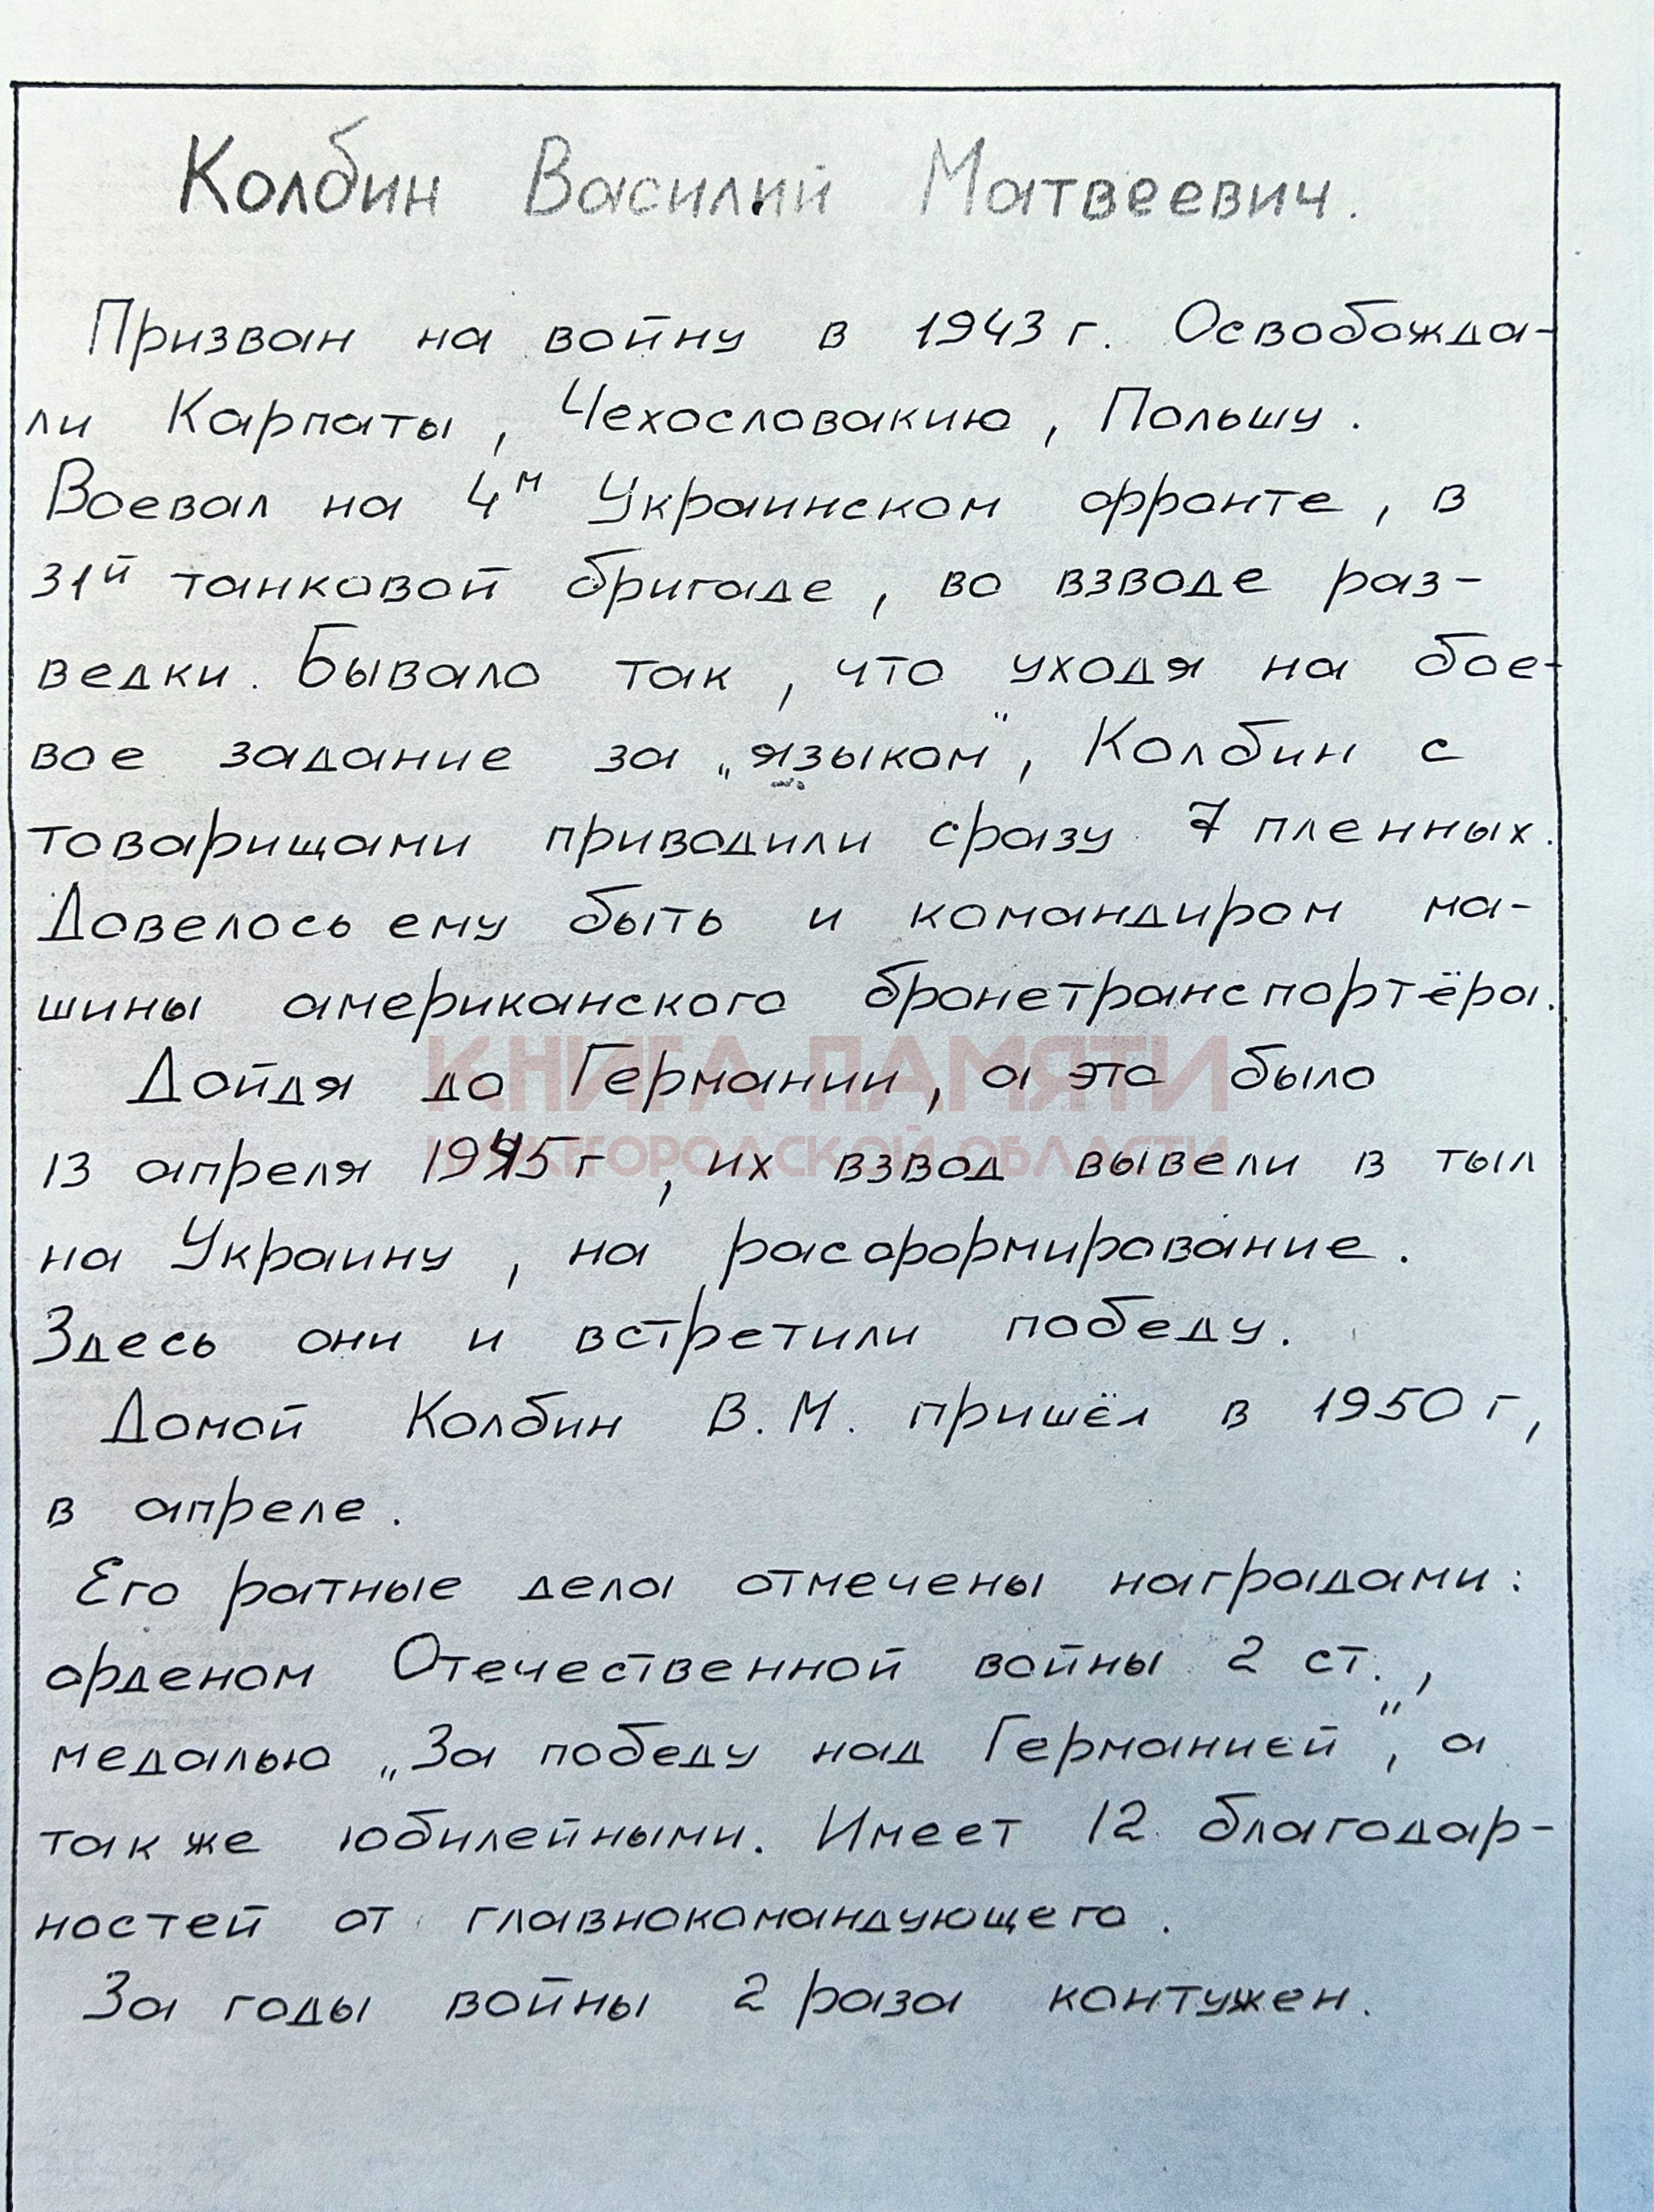 Колбин Василий Матвеевич.
Призван на войну в 1943 г. Освобожда-
ли Карпаты, Чехословакию, Польшу.
Воевал на 4м Украинском фронте, в
31й танковой бригаде, во взводе раз-
ведки. Бывало так, что уходя на бое-
вое задание за „языком", Колбин с
товарищами приводили сразу 7 пленных.
Довелось ему быть и командиром ма-
шины американского бронетранспортёра.
КНИГА ПАМЯТИ
Дойдя до Германии, а это было
НИЖЕГОРОДСКОЙ ОБЛАСТИ
13 апреля 1945 г, их взвод вывели в тыл
на Украину, на расформирование.
Здесь они и встретили победу.
Домой Колбин В.М. пришёл в 1950 г,
в апреле.
Его ратные дела отмечены наградами:
орденом Отечественной войны 2 ст.,
медалью „За победу над Германией", а
также юбилейными. Имеет 12 благодар-
ностей от главнокомандующего.
За годы войны 2 раза контужен.